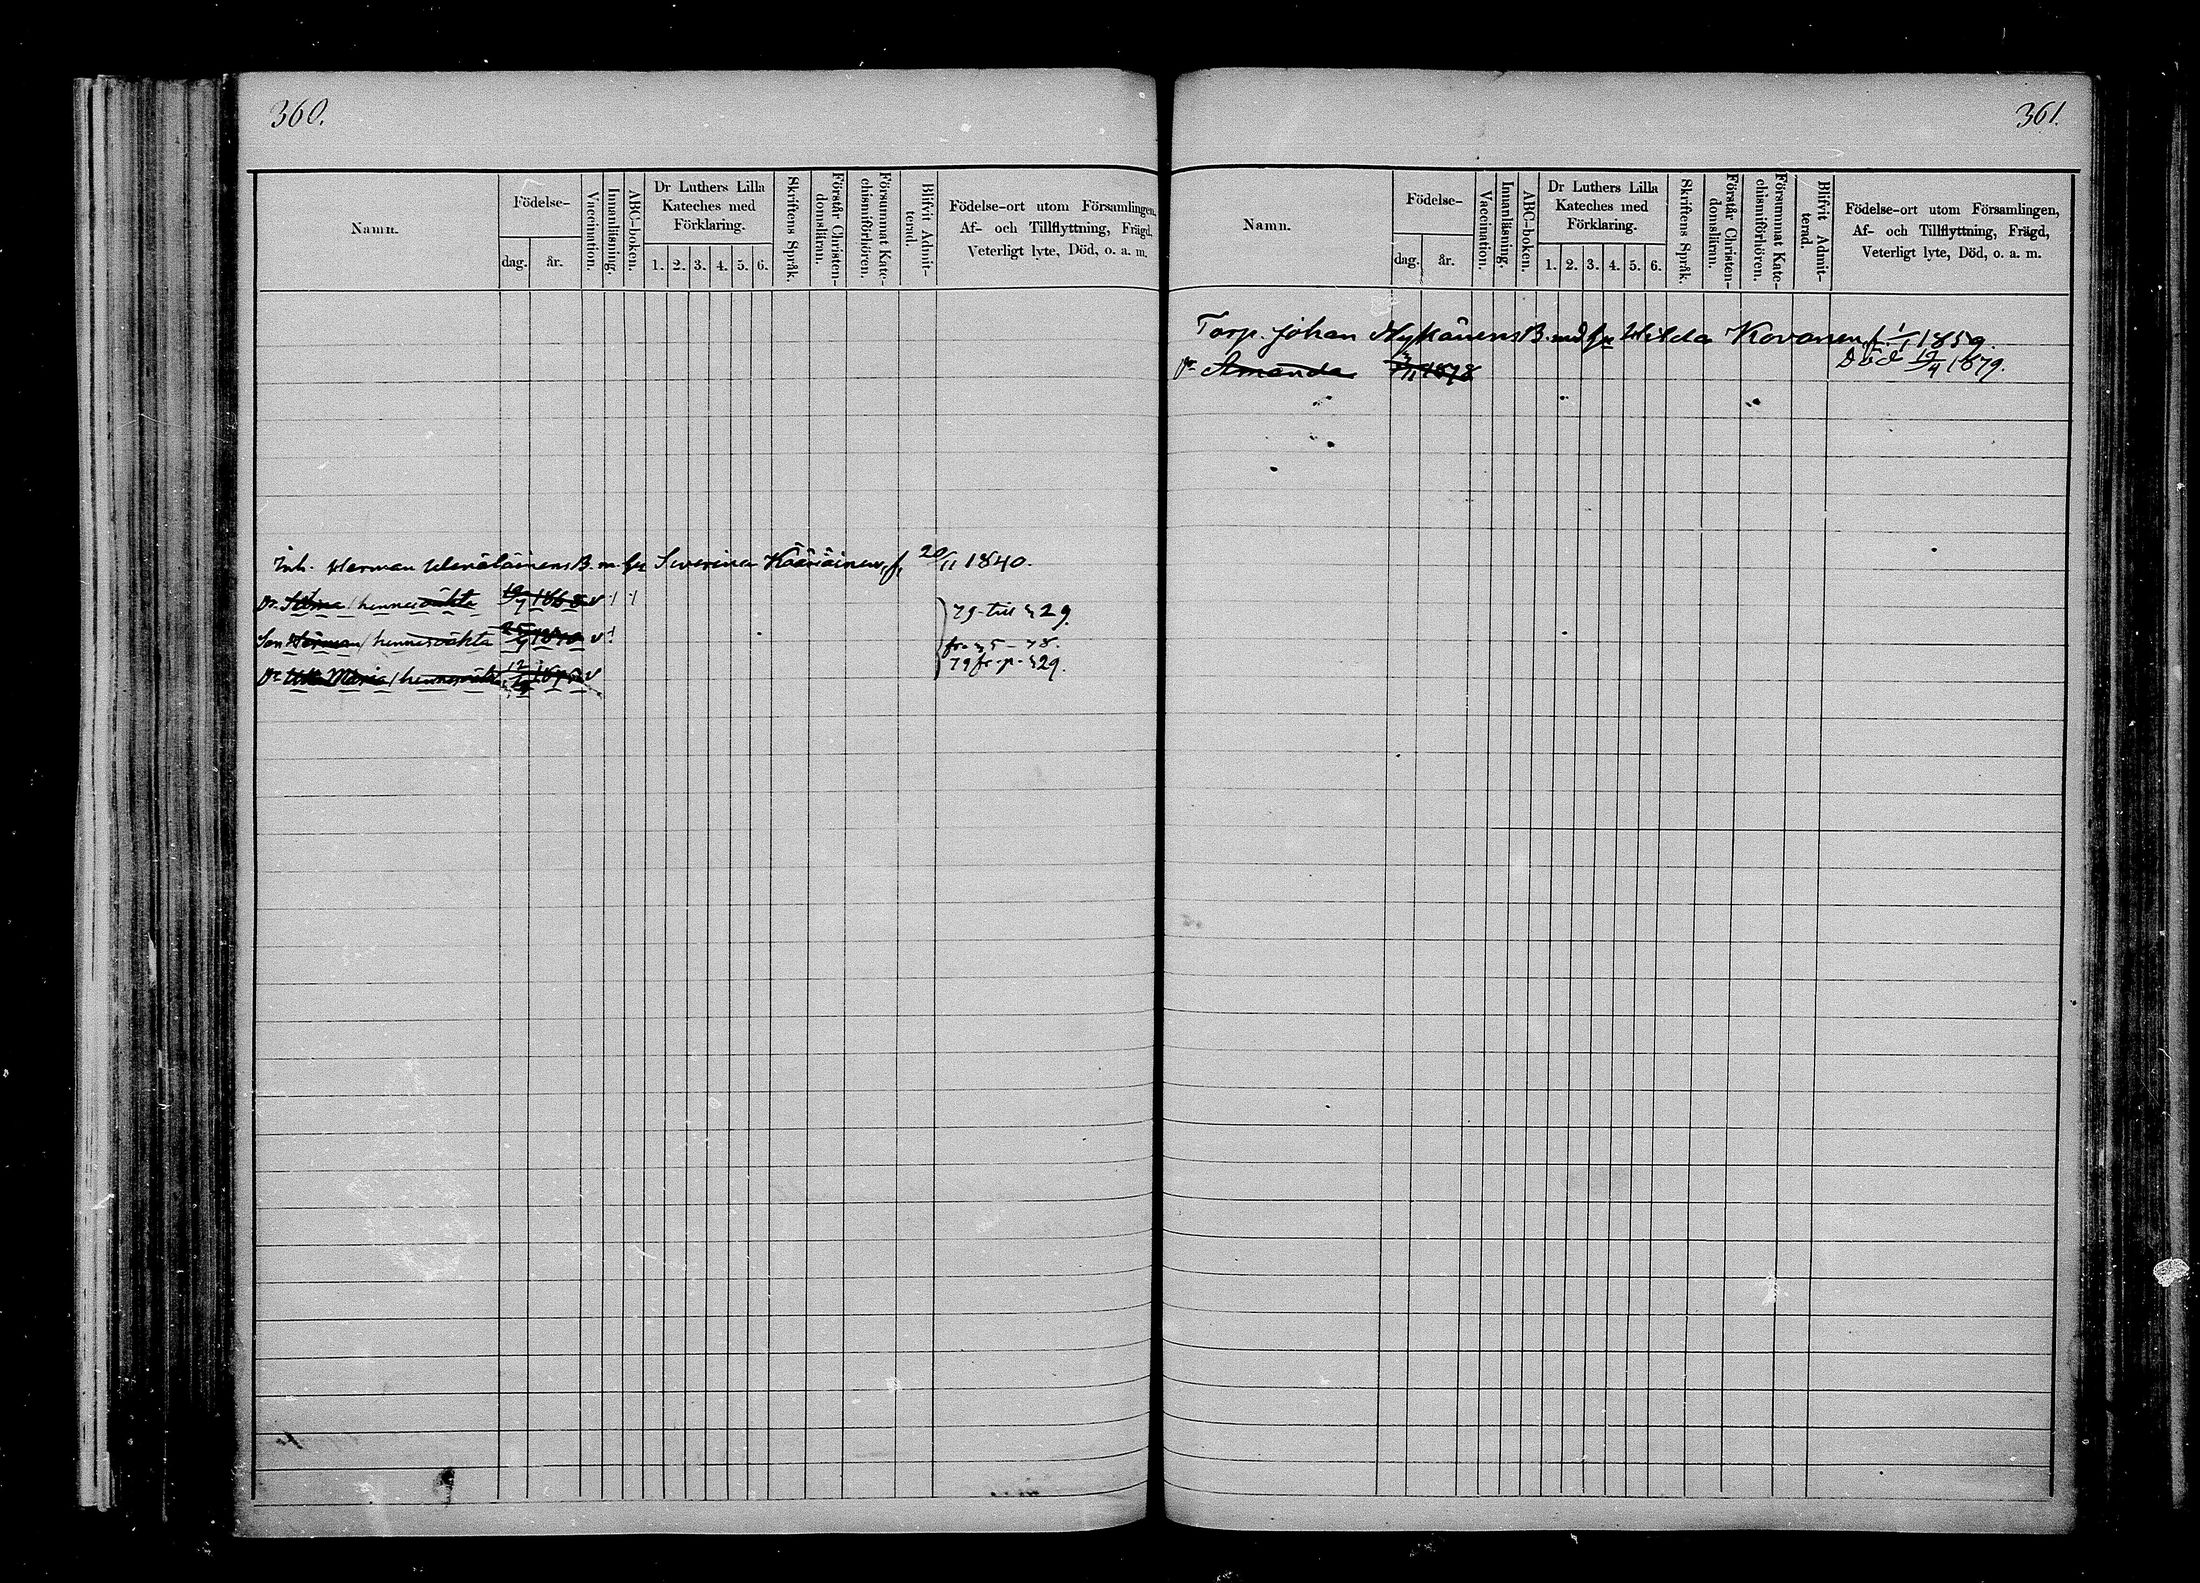 360.
Namn.
Födelse-
dag. år.
Vaccination.
Innanläsning.
ABC-boken.
Dr Luthers Lilla
Kateches med
Förklaring.
1. 2. 3. 4. 5. 6.
Skriftens Språk.
Förstår Christen-
domsläran.
Försummat Kate-
chismiförhören.
Blifvit Admit-
terad.
Födelse-ort utom Församlingen,
Af- och Tillflyttning, Frägd,
Veterligt lyte, Död, o. a. m.
Inh. Herman B. m. hu Severina Kääriäinen, f. 20/11 1840.
Dr. / hennes oäkta 1868 v
79 till 29.
Son Herman / hennes oäkta v
fr. 5 - 78.
Dr Maria / hennes oäkta v
79 fr. p. 29.
361.
Namn.
Födelse-
dag. år.
Vaccination.
Innanläsning.
ABC-boken.
Dr Luthers Lilla
Kateches med
Förklaring.
1. 2. 3. 4. 5. 6.
Skriftens Språk.
Förstår Christen-
domsläran.
Försummat Kate-
chismiförhören.
Blifvit Admit-
terad.
Födelse-ort utom Församlingen,
Af- och Tillflyttning, Frägd,
Veterligt lyte, Död, o. a. m.
Torp. Johan Nykänens B. med hu Hilda Kovanen, f. 1/1 1859.
Dr Amanda 1878 Död 12/4 1879.